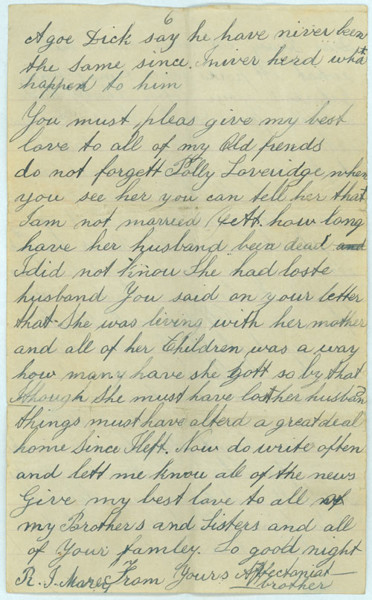 6
Agoe Dick say he have niver been
the same since. I niver herd what
happen to him
You must pleas give my best
love to all of my Old friends
do not forgett Polly Loveridge when
you see her you can tell her that
I am not married Yett. how long
have her husband been dead and
I did not Know She had loste
husband You said on your letter
that She was living with her mother
and all of her Children was a way
how many have she gott so by that
though She must have lost her husban
things must have alterd a great deal
home Since I left. Now do write often
and lett me know all of the news
Give my best love to all of
my Brothers and Sisters and all
of Your famley. So good night
R. J. From Yours
brother